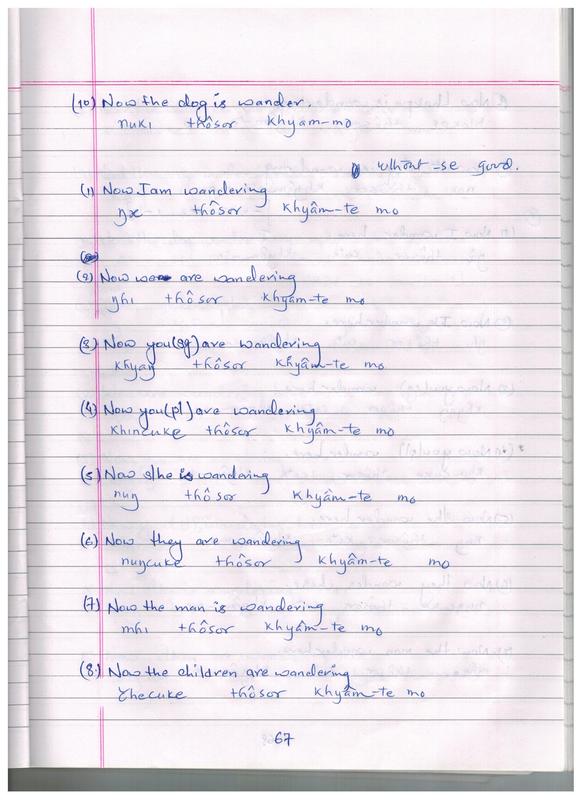 (10) Now the dog is wander.
nuki thôsor khyam-mo
without -se good.
(1) Now I am wandering
ŋx thôsor khyâm-te mo
(2) Now we are wandering
ŋhi thôsor khyâm-te mo
(3) Now you(sg) are wandering
khyaŋ thôsor khyâm-te mo
(4) Now you(pl) are wandering
khincuke thôsor khyâm-te mo
(5) Now s/he is wandering
nuŋ thôsor khyâm-te mo
(6) Now they are wandering
nuŋcuke thôsor khyâm-te mo
(7) Now the man is wandering
mhi thôsor khyâm-te mo
(8.) Now the children are wandering
thôsor khyâm-te mo
67